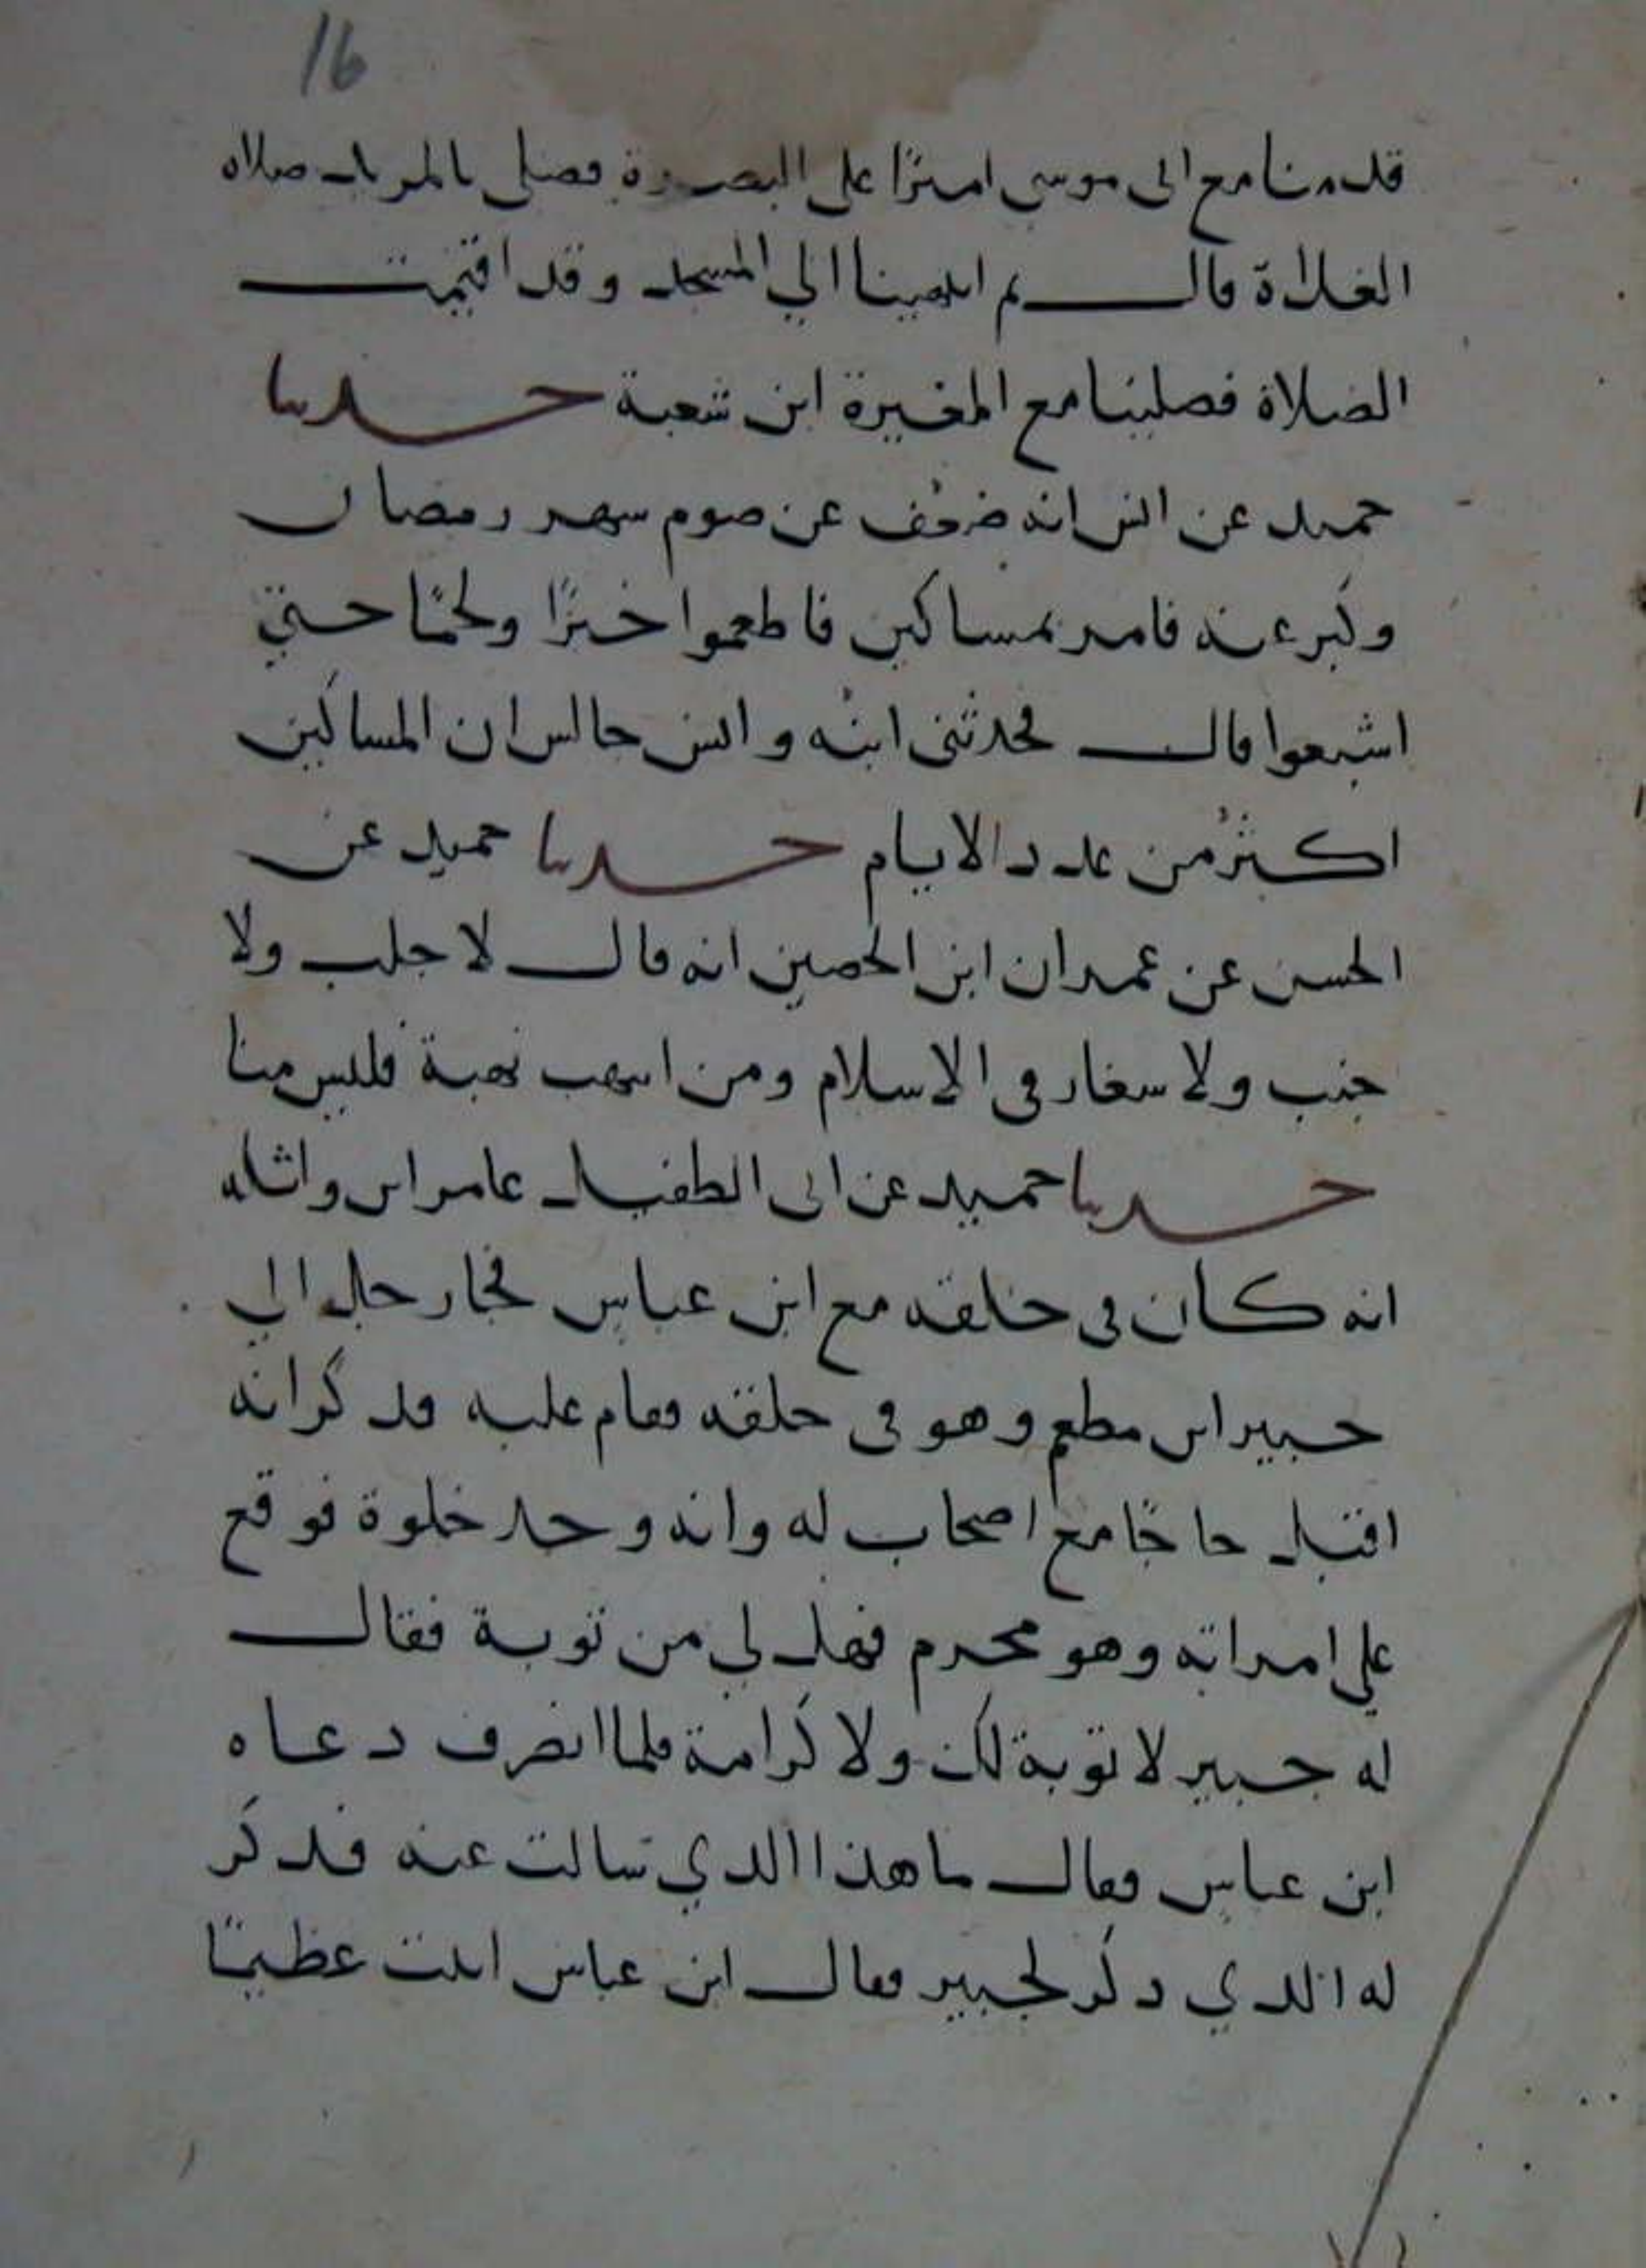 16
قدمنا مع ابى موسى اميرًا على البصرة فصلى بالمربد صلاه
الغداة قال ثم انتهينا الي المسجد وقد اقيمت
الصلاة فصلينا مع المغيرة ابن شعبة حدثنا
حميد عن انس انه ضعف عن صوم شهر رمضان
وكبر عنه فامر بمساكين فاطعموا خبزًا ولحمًا حتي
اشبعوا قال فحدثنى ابنه وانس جالس ان المساكين
اكثر من عدد الايام حدثنا حميد عن
الحسن عن عمران ابن الحصين انه قال لا جلب ولا
جنب ولا شغار فى الاسلام ومن انتهب نهبة فليس منا
حدثنا حميد عن ابى الطفيل عامر ابن واثله
انه كان فى حلقه مع ابن عباس فجا رجل الي
جبير ابن مطعم وهو فى حلقه فقام عليه فذكر انه
اقبل حاجًا مع اصحاب له وانه وجد خلوة فوقع
علي امراته وهو محرم فهل لي من توبة فقال
له جبير لا توبة لك ولا كرامة فلما انصرف دعاه
ابن عباس فقال ما هذا الذي سالت عنه فذكر
له الذي ذكر لجبير فقال ابن عباس اتيت عظيمًا